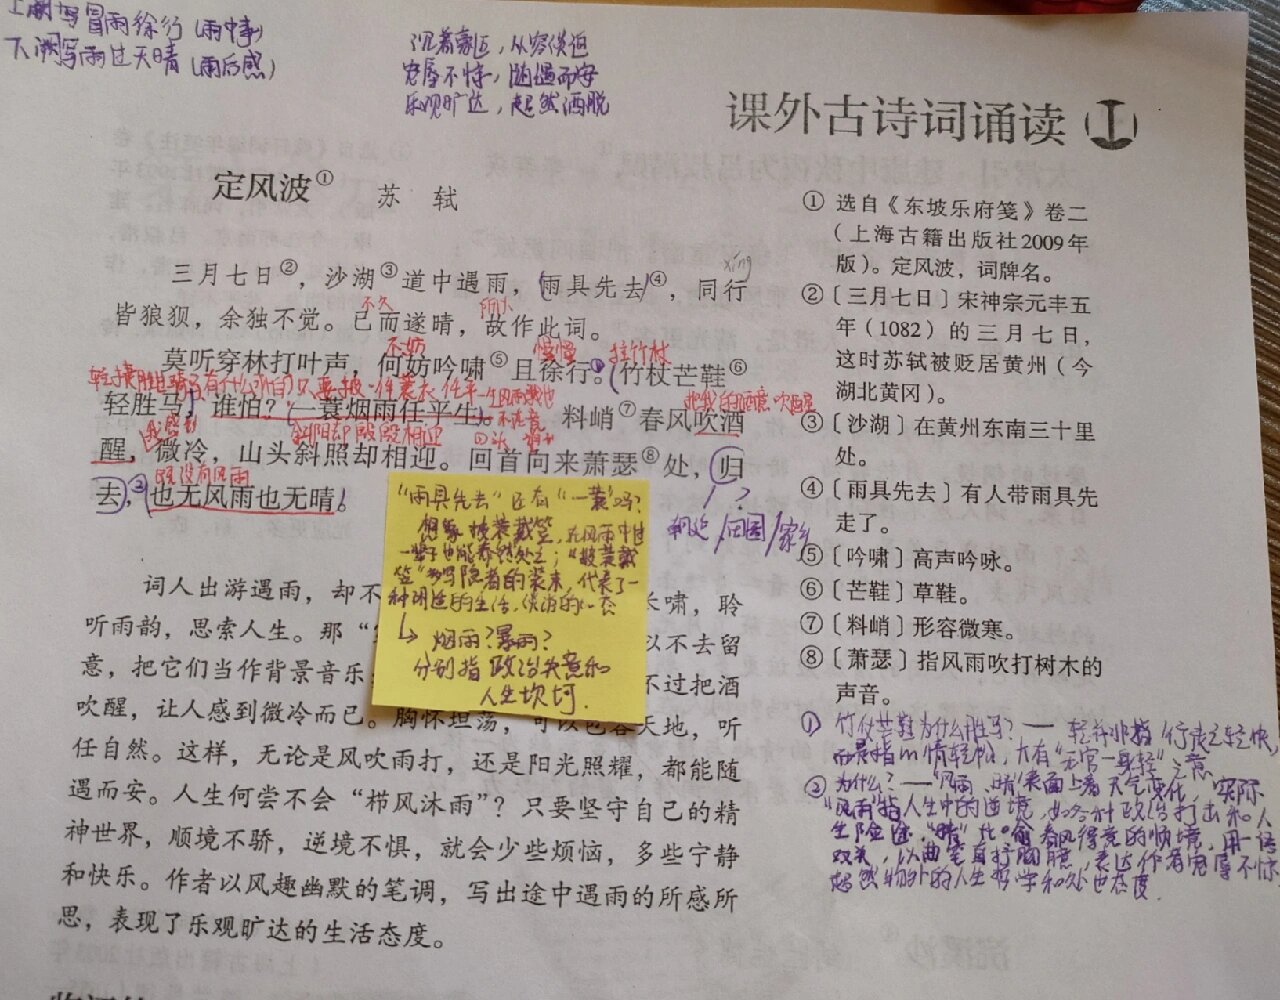 上阕写冒雨徐行(雨中事)
下阕写雨过天晴(雨后感)
沉着豪迈，从容镇迫
宠辱不惊，随遇而安
乐观旷达，超然洒脱
课外古诗词诵读
定风波① 苏 轼
xíng
三月七日②，沙湖③道中遇雨，雨具先去④，同行
不久 所以
皆狼狈，余独不觉。已而遂晴，故作此词。
不妨 慢慢 拄竹杖
莫听穿林打叶声，何妨吟啸⑤且徐行。①竹杖芒鞋⑥
轻胜马，谁怕？一蓑烟雨任平生。 料峭⑦春风吹酒
斜阳却殷殷相迎
醒，微冷，山头斜照却相迎。回首向来萧瑟⑧处，归
既没有风雨
去，②也无风雨也无晴！
?
朝廷/田园/家乡
"雨具先去"还有"一蓑"吗？
想象披蓑戴笠，在风雨中过
一辈子也能泰然处之；"披蓑戴
笠"
→烟雨？暴雨？
分别指政治失意和
人生坎坷.
词人出游遇雨，却不
长啸，聆
听雨韵，思索人生。那“
以不去留
意，把它们当作背景音乐
不过把酒
吹醒，让人感到微冷而已。胸怀坦荡，可以包容天地，听
任自然。这样，无论是风吹雨打，还是阳光照耀，都能随
遇而安。人生何尝不会“栉风沐雨”？只要坚守自己的精
神世界，顺境不骄，逆境不惧，就会少些烦恼，多些宁静
和快乐。作者以风趣幽默的笔调，写出途中遇雨的所感所
思，表现了乐观旷达的生活态度。
① 选自《东坡乐府笺》卷二
（上海古籍出版社2009年
版）。定风波，词牌名。
②〔三月七日〕宋神宗元丰五
年（1082）的三月七日，
这时苏轼被贬居黄州（今
湖北黄冈）。
③〔沙湖〕在黄州东南三十里
处。
④〔雨具先去〕有人带雨具先
走了。
⑤〔吟啸〕高声吟咏。
⑥〔芒鞋〕草鞋。
⑦〔料峭〕形容微寒。
⑧〔萧瑟〕指风雨吹打树木的
声音。
① 竹杖芒鞋为什么胜马？—— 轻并非指行走之轻快，
而是指心情轻松，大有"无官一身轻"之意
② 为什么？——"风雨、晴"表面上看天气变化，实际
"风雨"指人生中的逆境，如各种政治打击和人
生险途，"晴"比喻春风得意的顺境，用一语
双关，以曲笔直抒胸臆，表达作者宠辱不惊
超然物外的人生哲学和处世态度.